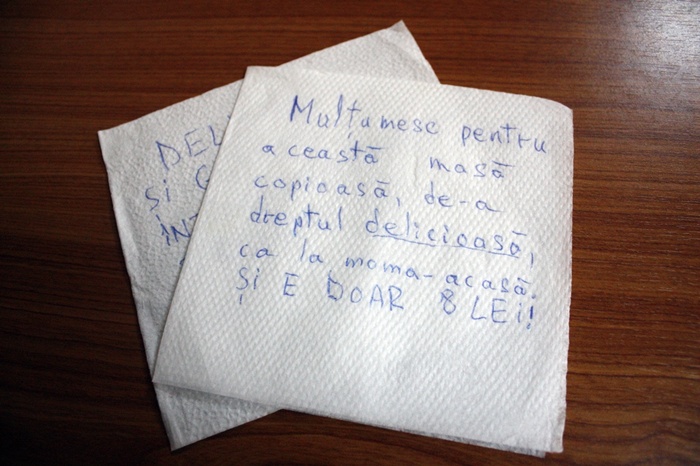 Mulțumesc pentru
această masă
copioasă, de-a
dreptul delicioasă,
ca la moma-acasă.
Și E DOAR 8 LEi!
Și